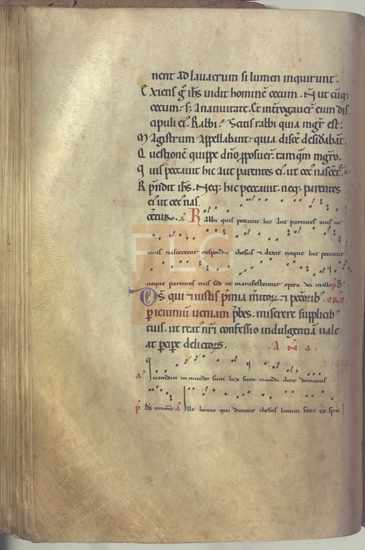 nent ad lauacrum si lumen inquirunt.
Exiens g ihs uidit hominē cecum. N ut cūq;
cecum. s; A natiuitate. Et interrogauer eum dis
cipuli ei. Rabbi. Scitis rabbi quia mgr est.
Magistrum Appellabant. quia discē desidabāt.
Questionē quippe dno pposuer. tamqm mgro.
Quis peccauit hic aut parentes ei. ut cec nascet.
Rpndit ihs. Neq; hic peccauit. neq; parentes
ei ut cec nas
cetur. a Rabbi quis peccauit hic Aut parentes eius ut
cecus nasceretur respondit ihesus & dixit neque hic peccauit
neque parentes eius sed ut manifestentur opera dei in illo
FLG
Ds qui & iustis pmia mitor & peccorib ORO.
p ieiuniū ueniam pbes. miserere supplicib
tuis. ut reat nri confessio indulgentiā uale
at pcipe delictorū.
a Quamdiu in mundo sum lux sum mundi dicit dominus
a Ille homo qui dicitur ihesus lutum fecit ex spu